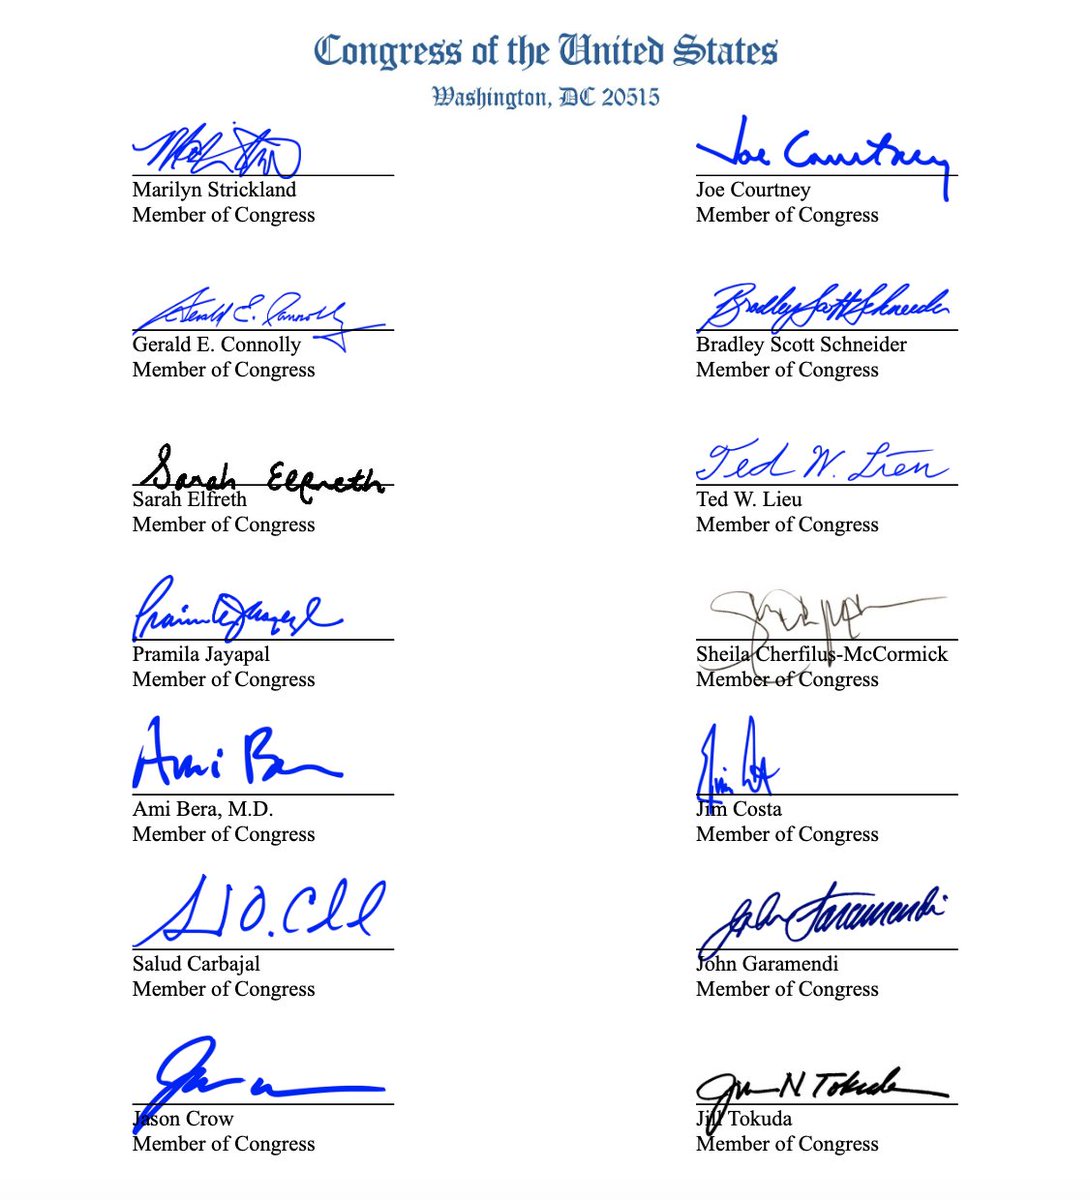 Congress of the United States
Washington, DC 20515
Marilyn Strickland
Member of Congress
Joe Courtney
Joe Courtney
Member of Congress
Gerald E. Connolly
Gerald E. Connolly
Member of Congress
Bradley Scott Schneider
Bradley Scott Schneider
Member of Congress
Sarah Elfreth
Sarah Elfreth
Member of Congress
Ted W. Lieu
Ted W. Lieu
Member of Congress
Pramila Jayapal
Pramila Jayapal
Member of Congress
Sheila Cherfilus-McCormick
Member of Congress
Ami Bera
Ami Bera, M.D.
Member of Congress
Jim Costa
Member of Congress
Salud Carbajal
Member of Congress
John Garamendi
John Garamendi
Member of Congress
Jason Crow
Member of Congress
N Tokuda
Jill Tokuda
Member of Congress